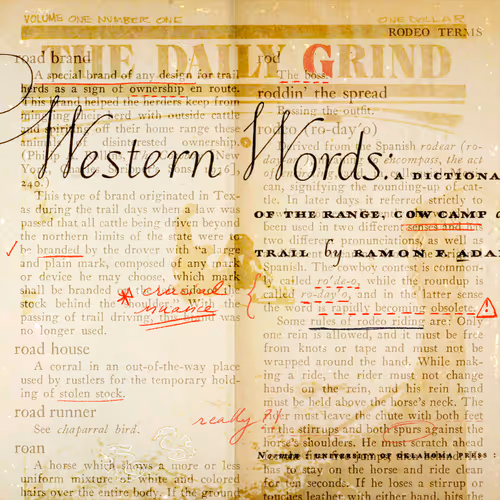 VOLUME ONE NUMBER ONE
ONE DOLLAR
RODEO TERMS
THE DAILY GRIND
road brand
A special brand of any design for trail
herds as a sign of ownership en route.
This brand helped the herders keep from
mixing their herd with outside cattle
off their home range these
disinterested ownership.
240.)
This type of brand originated in Tex-
as during the trail days when a law was
passed that all cattle being driven beyond
the northern limits of the state were to
be branded by the drover with "a large
and plain mark, composed of any
or device he may choose, which mark
shall be branded
stock behind the shoulder." With the
passing of trail driving, this brand was
no longer used.
crucial
nuance
road house
A corral in an out-of-the-way place
used by rustlers for the temporary hold-
ing of stolen stock.
road runner
See chaparral bird.
roan
A horse which shows a more or less
uniform mixture of white and colored
hairs over the entire body. If the ground
rod
The boss.
roddin' the spread
Bossing the outfit.
(ro-day'o)
Derived from the Spanish rodear (ro-
encompass, the act
can, signifying the rounding-up of cat-
tle. In later days it referred strictly
been used in two different
two different pronunciations, as well
Spanish. The cowboy contest is comm
ly called ro'de-o, while the roundup
called ro-day'o, and in the latter sense
the word is rapidly becoming obsolete.
Some rules of rodeo riding are: Only
one rein is allowed, and it must be free
from knots or tape and must not be
wrapped around the hand. While mak-
ing a ride, the rider must not change
hands on the rein, and his rein hand
must be held above the horse's neck. The
rider must leave the chute with both feet
in the stirrups and both spurs against the
horse's shoulders. He must scratch ahead
has to stay on the horse and ride clear
for ten seconds. If he loses a stirrup
touches leather with either hand, bits
really
Western Words.
A DICTIONA
OF THE RANGE, COW CAMP
TRAIL by RAMON F. ADA
UNIVERSITY OF OKLAHOMA PRESS :